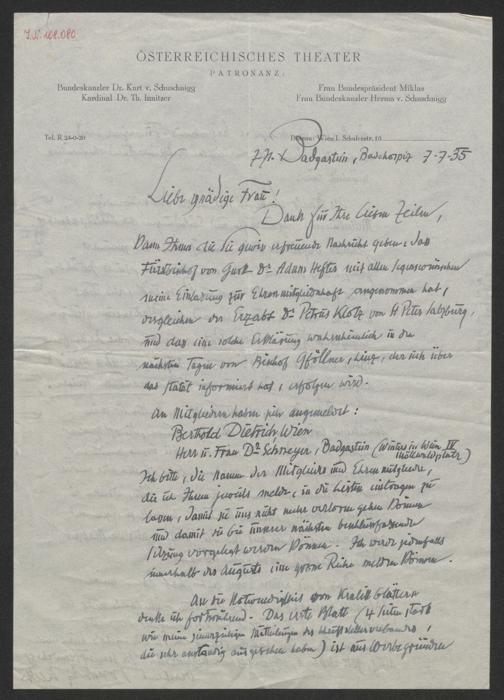 J.N. 168.080
ÖSTERREICHISCHES THEATER
PATRONANZ:
Bundeskanzler Dr. Kurt v. Schuschnigg
Kardinal Dr. Th. Innitzer
Frau Bundespräsident Miklas
Frau Bundeskanzler Herma v. Schuschnigg
Tel. R 24-0-20
Wien I. Schulerstr. 10
Badgastein, Badehospiz 7-7-35
Liebe gnädige Frau!
Dank für Ihre lieben Zeilen,
Kann Ihnen die Sie gewiss erfreuende Nachricht geben, das
Fürstbischof von Gurk Dr Adam Hefter mit allen
meine Einladung zur Ehrenmitgliedschaft angenommen hat,
desgleichen der Erzabt Dr Petrus Klotz von St Peter Salzburg,
und das eine solche Erklärung wahrscheinlich in den
nächsten Tagen von Bischof Gföllner, Linz, der sich über
das Statut informiert hat, erfolgen wird.
An Mitgliedern haben sich angemeldet:
Berthold Dietrich, Wien
Herr u. Frau Dr Schreyer, Badgastein (Winter in Wien IV
Mozartplatz)
Ich bitte, die Namen der Mitglieder und Ehrenmitglieder,
die ich Ihnen jeweils melde, in die Listen eintragen zu
lassen, damit sie uns nicht mehr verloren gehen können
und damit sie bei unserer nächsten beschlussfassenden
Sitzung vorgelegt werden können. Ich werde jedenfalls
innerhalb des Augusts eine grosse Reihe melden können.
An die Notwendigkeit von Kralikblättern
denke ich fortwährend. Das erste Blatt (4 Seiten stark
wie meine seinerzeitigen Mitteilungen des Schriftstellerverbandes,
die sehr anständig ausgesehen haben) ist aus Werbegründen